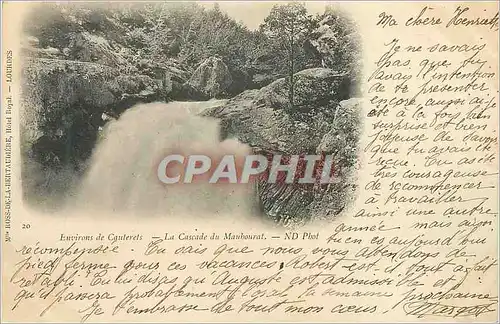 Ma chère Henriette
Je ne savais
pas que tu
avais l'intention
de te présenter
encore, aussi ai-je
été à la fois
surprise et bien
de savoir
que tu avais été
reçue. Tu as été
très courageuse
de recommencer
à travailler
ainsi une autre
année mais aussi
tu en es aujourd'hui
récompensée. Tu sais que nous vous attendons de
pied ferme pour ces vacances. Robert est-il tout à fait
rétabli. Tu lui diras qu'Auguste est admissible et
qu'il passera probablement l'oral la semaine prochaine
Je t'embrasse de tout mon cœur. Margot
CPAPHIL
20
Environs de Cauterets — La Cascade du Mauhourat. — ND Phot
Mme ROSS-DE-LA-BERTAUDIÈRE, Hôtel Royal. — LOURDES